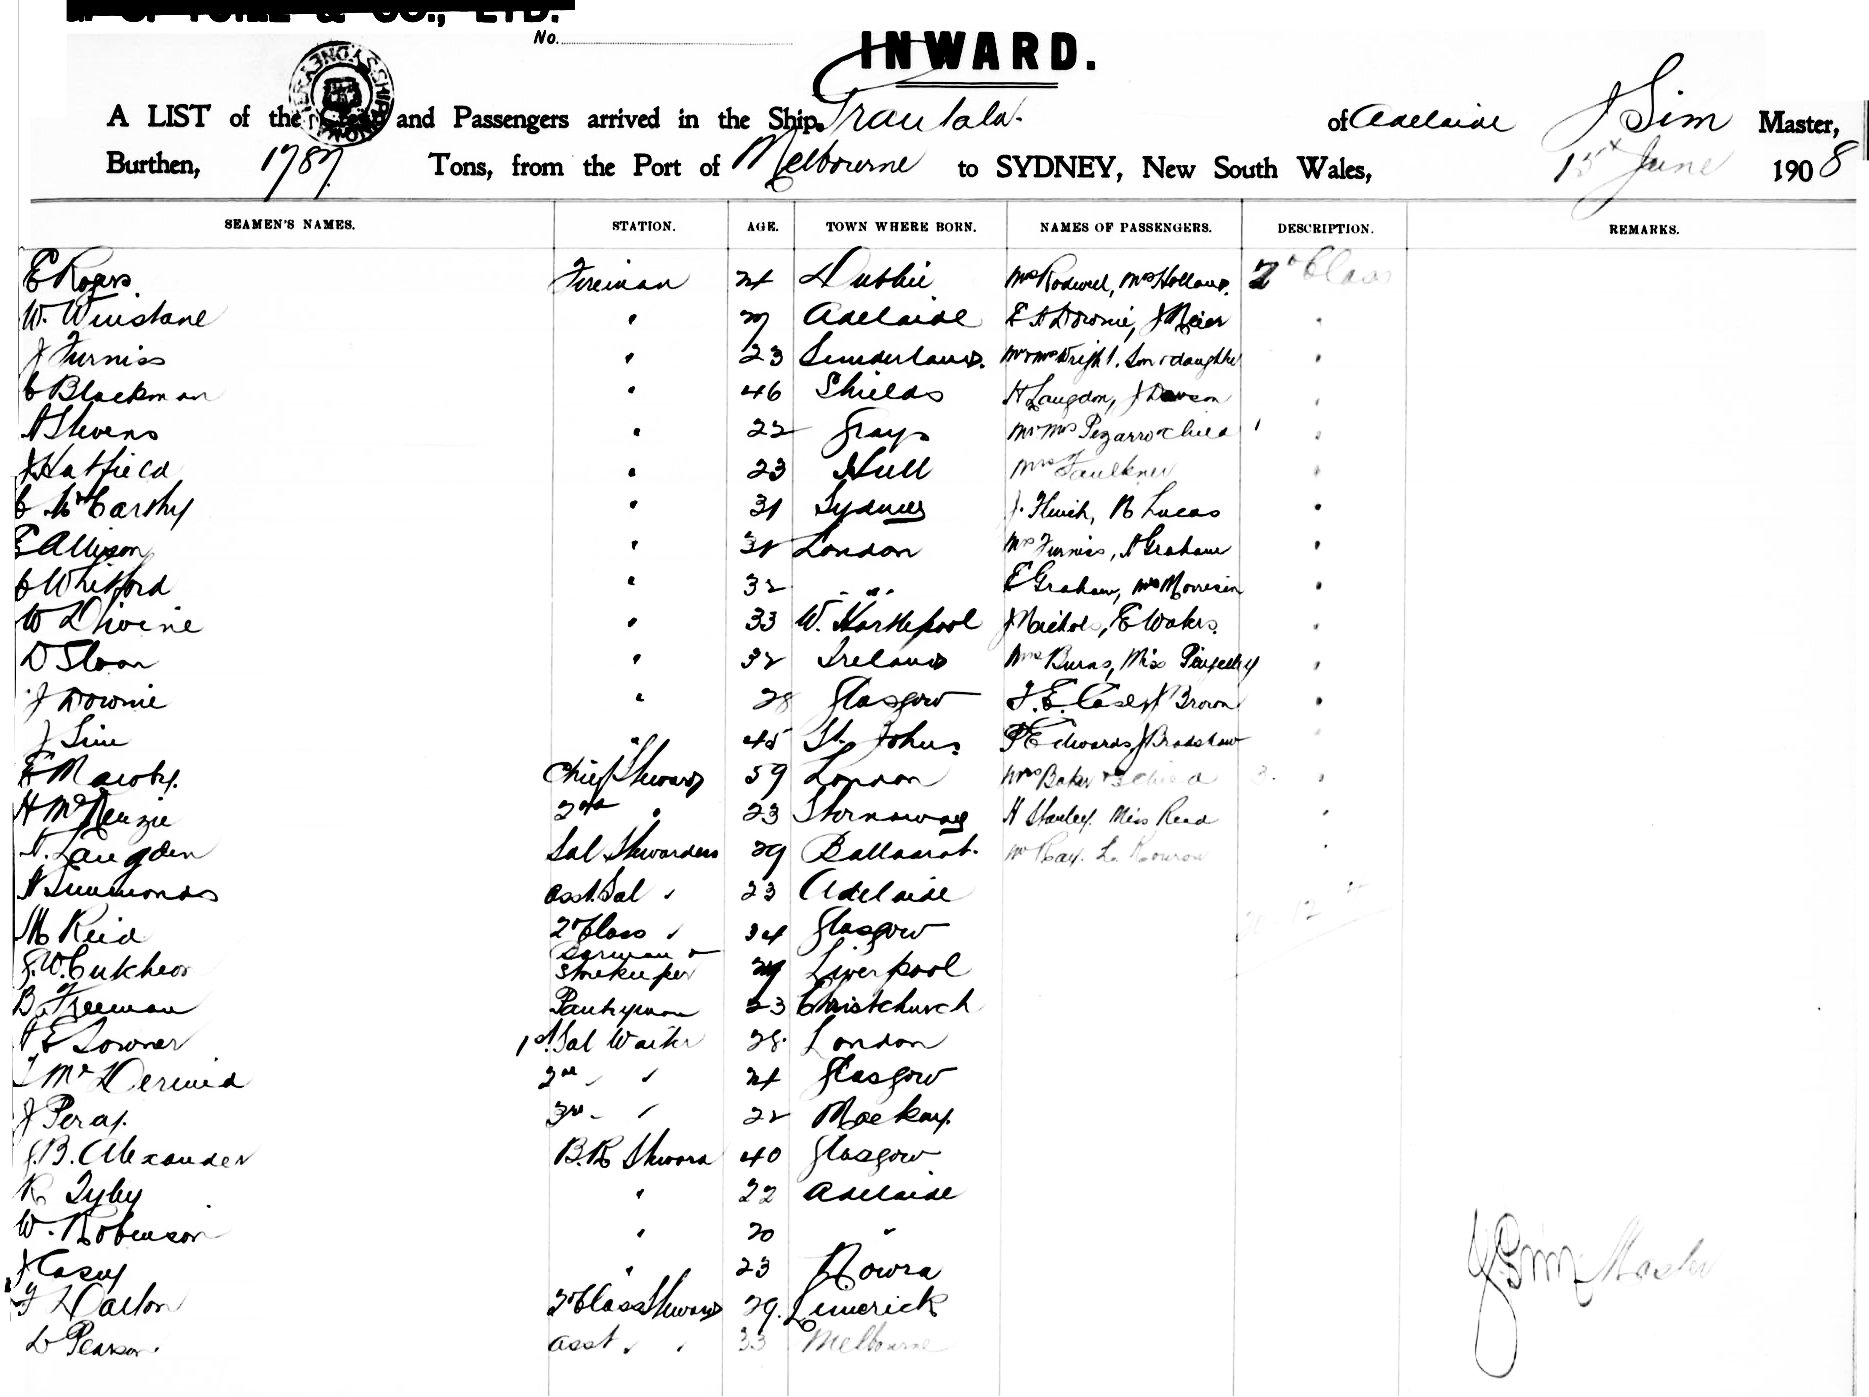 & CO., LTD.
No.
INWARD.
A LIST of the and Passengers arrived in the Ship Grantala of Adelaide J Sim Master,
Burthen, 1787 Tons, from the Port of Melbourne to SYDNEY, New South Wales, 15th June 1908
SEAMEN'S NAMES. STATION. AGE. TOWN WHERE BORN. NAMES OF PASSENGERS. DESCRIPTION. REMARKS.
E Rogers Fireman 24 Mrs Rodwell, Mrs Holland. 2nd Class
W. Winstane " 27 Adelaide E A Downie, J Meier "
J Furniss " 23 Sunderland. Mr & Mrs Wright. Son & daughter "
C Blackman " 46 Shields H Langdon, J Dawson "
A Stevens " 22 Grays Mr & Mrs Pezarro & child 1 "
J Hatfield " 23 Hull Mrs Faulkner "
C McCarthy " 31 Sydney J. R Lucas "
E Allison " London Mrs Furniss, A Graham "
C Whitford " 32 " E Graham, Mrs Morrison "
W Divine " 33 W. Hartlepool J Nichols, E Waters. "
D Sloan " 32 Ireland Mrs Burns, Miss "
J Downie " 28 Glasgow F. E. Case, J Brown "
J Sim " 45 St. Johns P Edwards, J Bradshaw "
E Macoby. Chief Steward 59 London Mrs Baker & 3 child 3. "
H McKenzie 2nd " 23 Stornoway H Stanley. Miss Read "
A. Langden Sal Stwardess 29 Ballaarat. Mr Ray. "
A Simmonds asst. Sal " 23 Adelaide
M Reid 2nd Class " 34 Glasgow
G. W. Cutcheon Barman & Storekeeper Liverpool
B. Freeman Pantryman 23 Christchurch
A E Downer 1st. Sal Waiter 28 London
T McDermid 2nd " " 24 Glasgow
J Peray. 3rd " " 22 Mackay.
J. B. Alexander B. R Steward 40 Glasgow
R Tyley " 22 Adelaide
W. Robinson " 20 "
J Casey " 23 Nowra
J Sim Master
F Dalton 2nd Class Steward 29. Limerick
D Pearson. asst " " 33 Melbourne